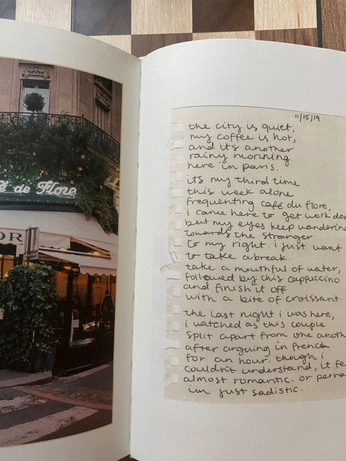 é de Flore
OR
11/15/19
the city is quiet,
my coffee is hot,
and its another
rainy morning
here in paris.
its my third time
this week alone
frequenting café du flore,
i came here to get work don
but my eyes keep wanderin
towards the stranger
to my right i just want
to take a break.
take a mouthful of water,
followed by this cappuccino
and finish it off
with a bite of croissant.
the last night i was here,
i watched as this couple
split apart from one anoth
after arguing in french
for an hour. though i
couldn't understand, it fe
almost romantic. or perha
im just sadistic.